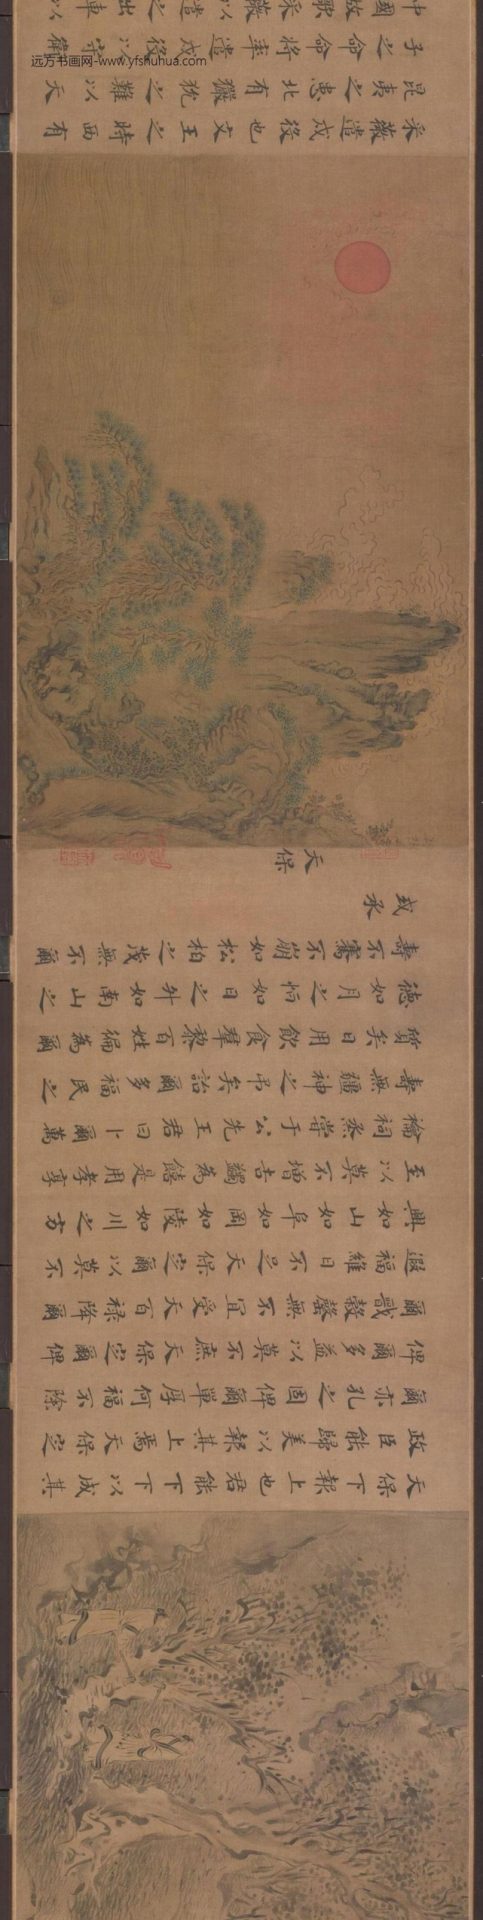 天保下報上也君能下下以成其
政臣能歸美以報其上焉天保定
爾亦孔之固俾爾單厚何福不除
俾爾多益以莫不庶天保定爾俾
爾戩穀罄無不宜受天百祿降爾
遐福維日不足天保定爾以莫不
興如山如阜如岡如陵如川之方
至以莫不增吉蠲為饎是用孝享
禴祠烝嘗于公先王君曰卜爾萬
壽無疆神之弔矣詒爾多福民之
質矣日用飲食羣黎百姓徧為爾
德如月之恒如日之升如南山之
壽不騫不崩如松柏之茂無不爾
或承
天保
采薇遣戍役也文王之時西有
昆夷之患北有玁狁之難以天
子之命命將率遣戍役以守衛
中國故歌采薇以遣之出車以
远方书画网-www.yfshuhua.com